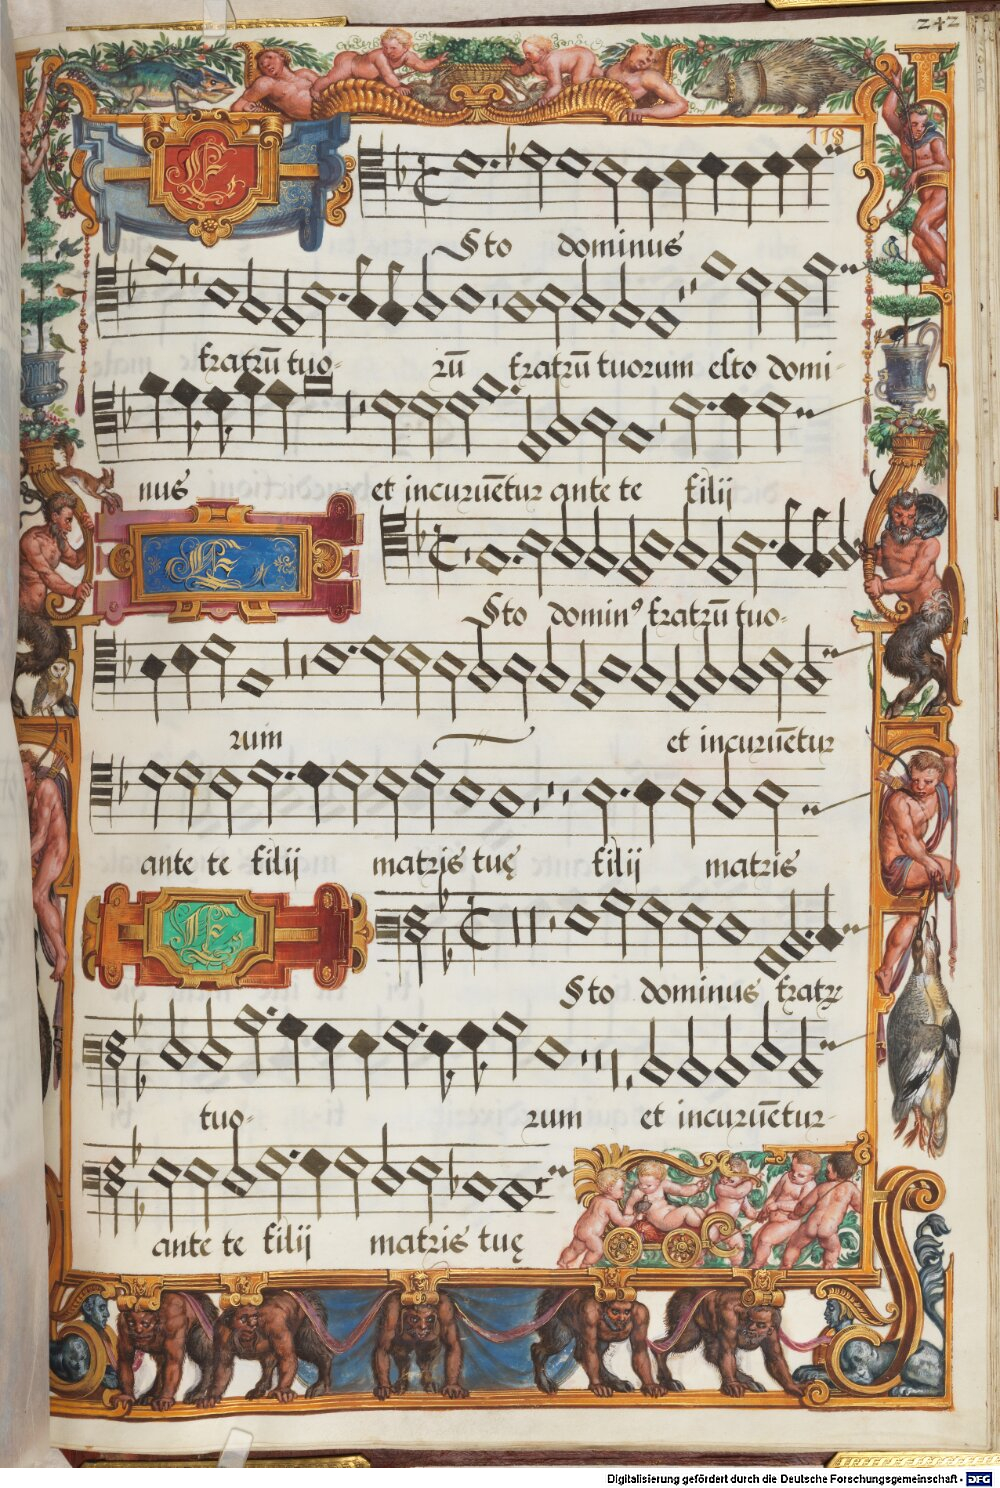 242
118
E
Sto dominus
fratrū tuo- rū fratrū tuorum esto domi-
nus et incuruētur ante te filij
E
Sto dominꝰ fratrū tuo-
rum et incuruētur
ante te filij matris tuę filij matris
E
Sto dominus fratrꝝ
tuo- rum et incuruētur-
ante te filij matris tuę
Digitalisierung gefördert durch die Deutsche Forschungsgemeinschaft - DFG